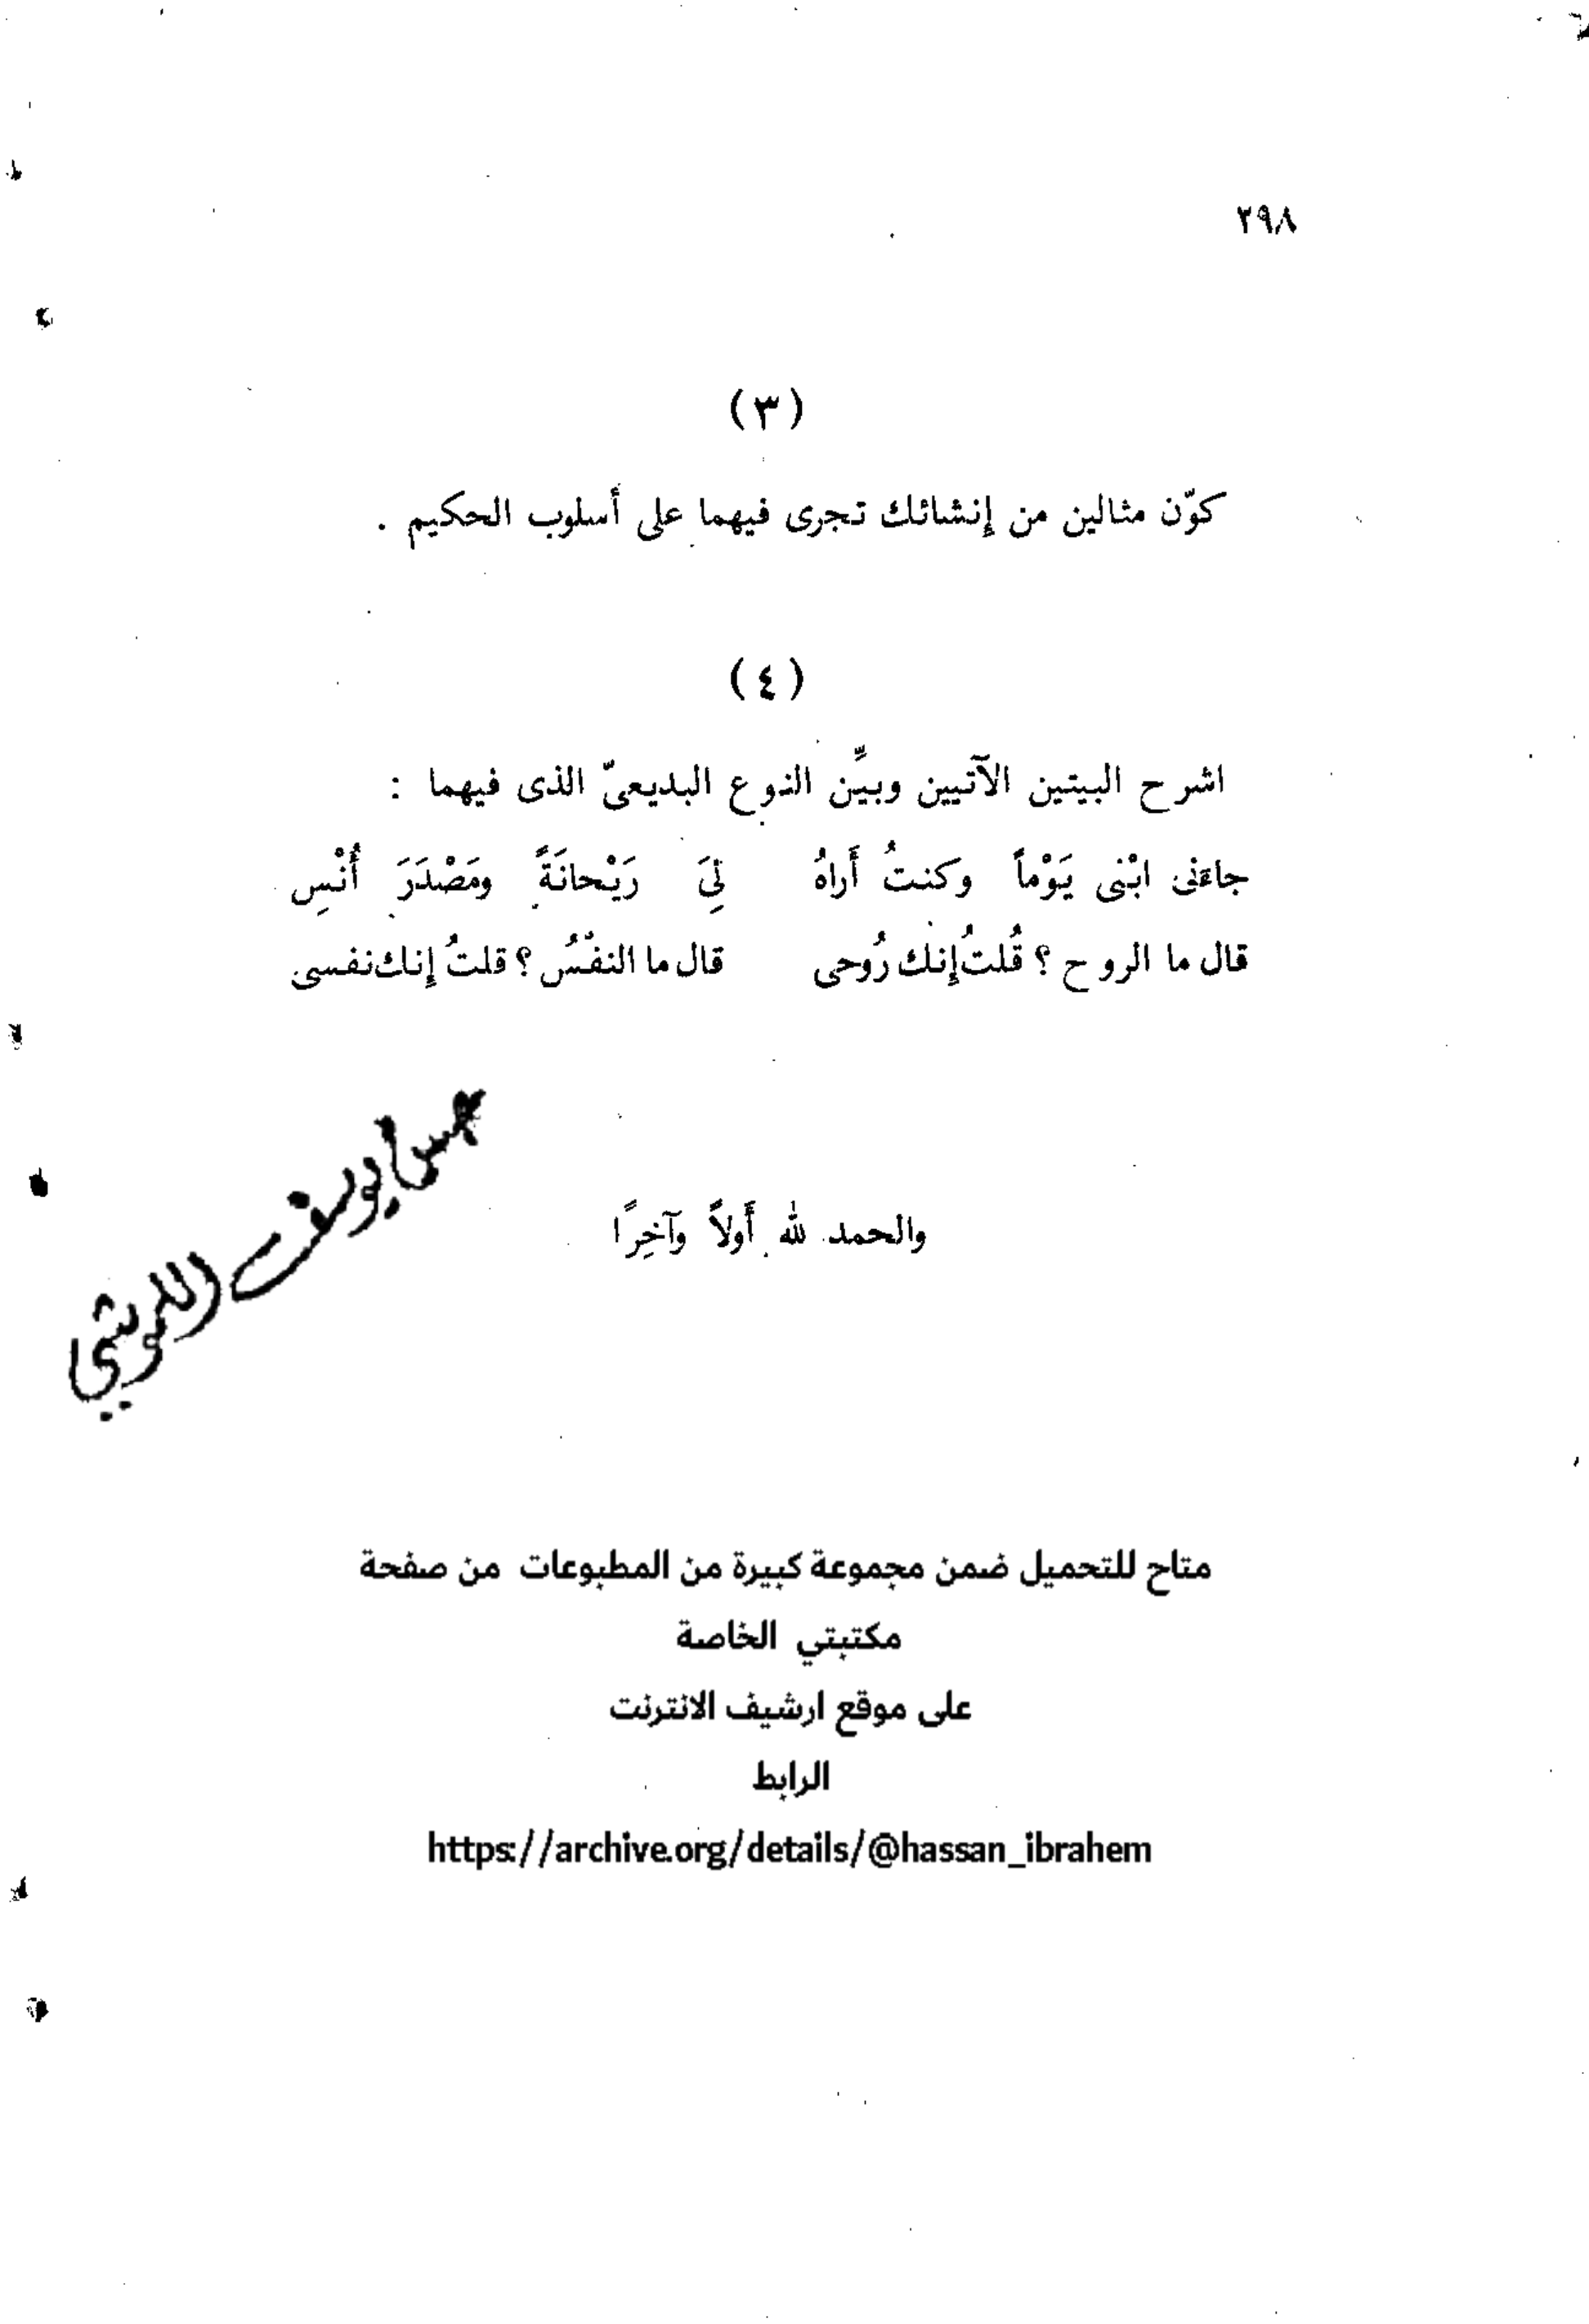 ٢٩٨
(٣)
كوّن مثالين من إنشائك تجرى فيهما على أسلوب الحكيم .
(٤)
اشرح البيتين الآتيين وبيِّن النوع البديعىّ الذى فيهما :
جاءنى ابْنِى يَوْماً وكنتُ أَراهُ لِىَ رَيْحانَةً ومَصْدَرَ أُنْسِ
قال ما الروح ؟ قُلتُ إِنك رُوحى قال ما النفْسُ ؟ قلتُ إِنك نفسى
والحمد لله أَولاً وآخِرًا
يوسف
متاح للتحميل ضمن مجموعة كبيرة من المطبوعات من صفحة
مكتبتي الخاصة
على موقع ارشيف الانترنت
الرابط
https://archive.org/details/@hassan_ibrahem